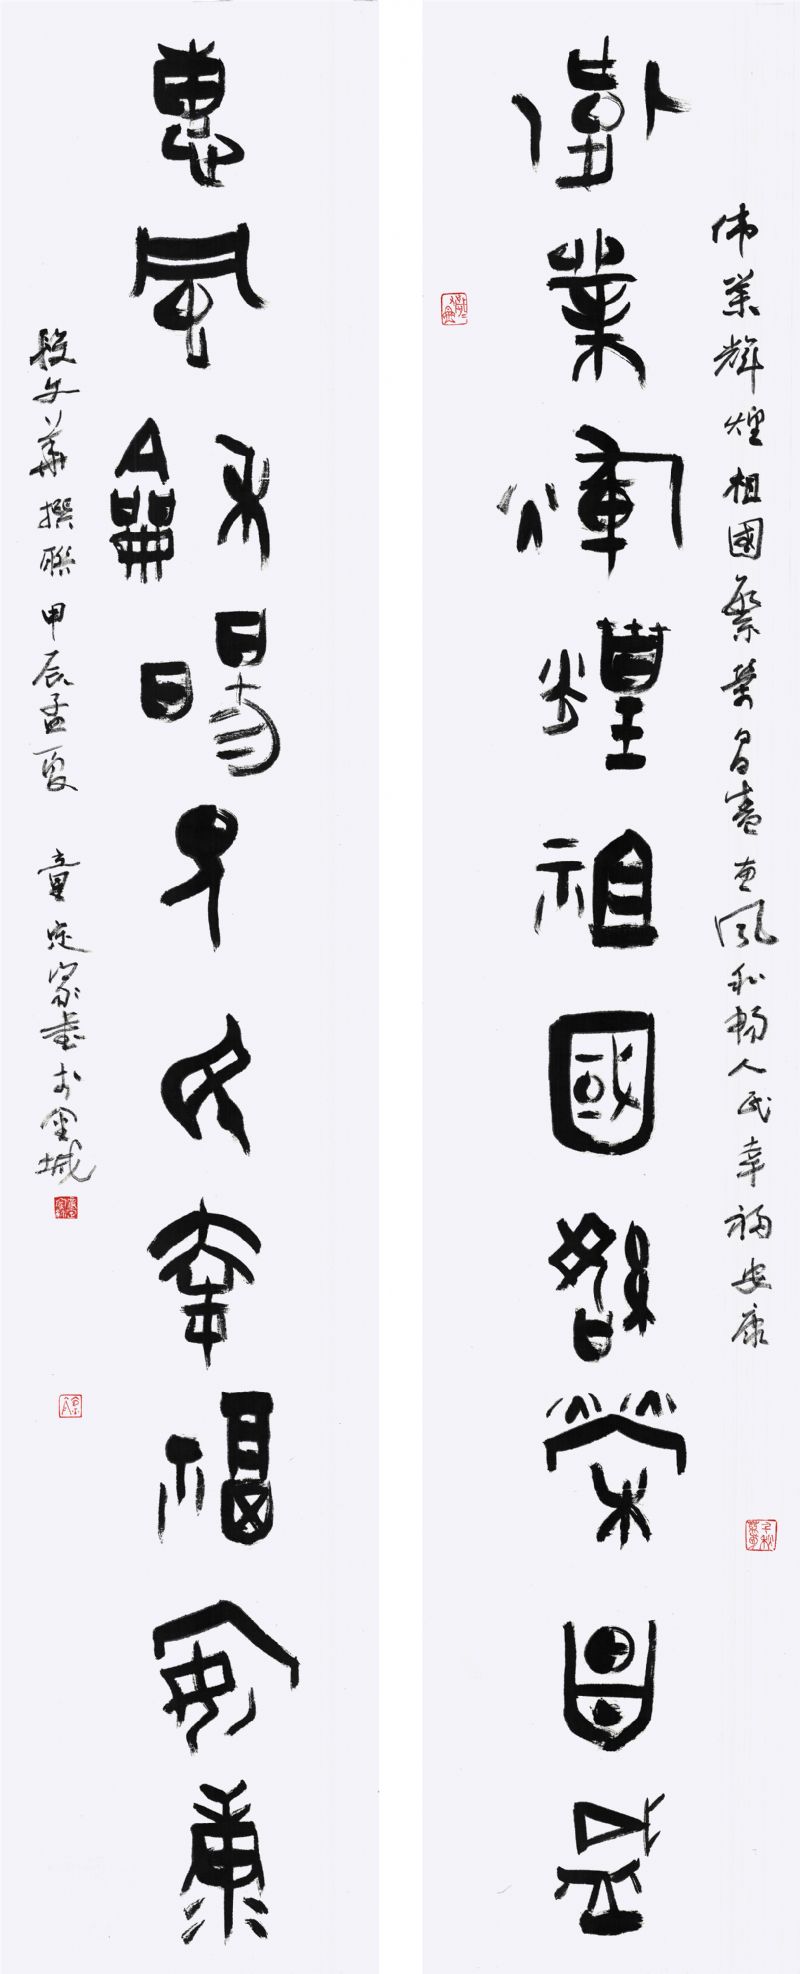 偉業輝煌祖國繁榮昌盛
伟業輝煌祖國繁榮昌盛惠風和畅人民幸福安康
惠風龢暢人民幸福安康
段文華撰聯甲辰孟夏 童定家書於金城